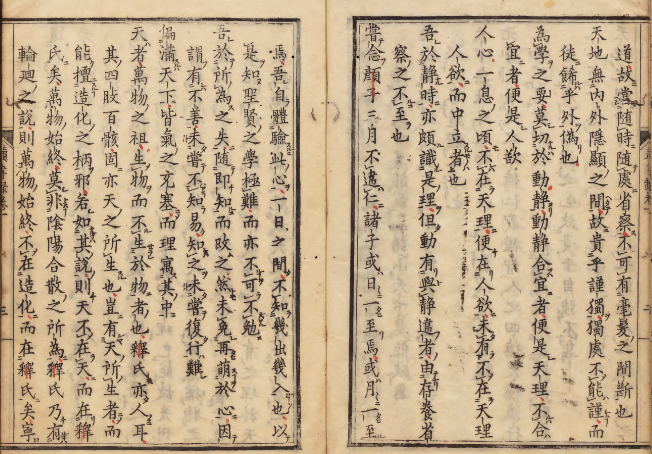 道故當隨時隨處省察不可有毫髮之間斷也
天地無內外隱顯之間故貴乎謹獨獨處不能謹而
徒餙乎外偽也
為學之要莫切於動靜動靜合宜者便是天理不合
宜者便是人欲
人心一息之頃不在天理便在人欲未有不在天理
人欲而中立者也
吾於靜時亦頗識是理但動有與靜違者由存養省
察之不至也
嘗念顏子三月不違仁諸子或日一至焉或月一至
焉吾自體驗此心一日之間不知幾出幾入也以
是知聖賢之學極難而亦不可不勉
吾於所為之失隨即知而改之然未免再萌於心因
謂有不善未嘗不知易知之未嘗復行難
徧滿天下皆氣之充塞而理寓其中
天者萬物之祖生物而不生於物者也釋氏亦人耳
其四肢百骸固亦天之所生也豈有天所生者而
能擅造化之柄邪若如其說則天不在天而在釋
氏矣萬物始終莫非陰陽合散之所為釋氏乃有
輪廻之說則萬物始終不在造化而在釋氏矣寧
三